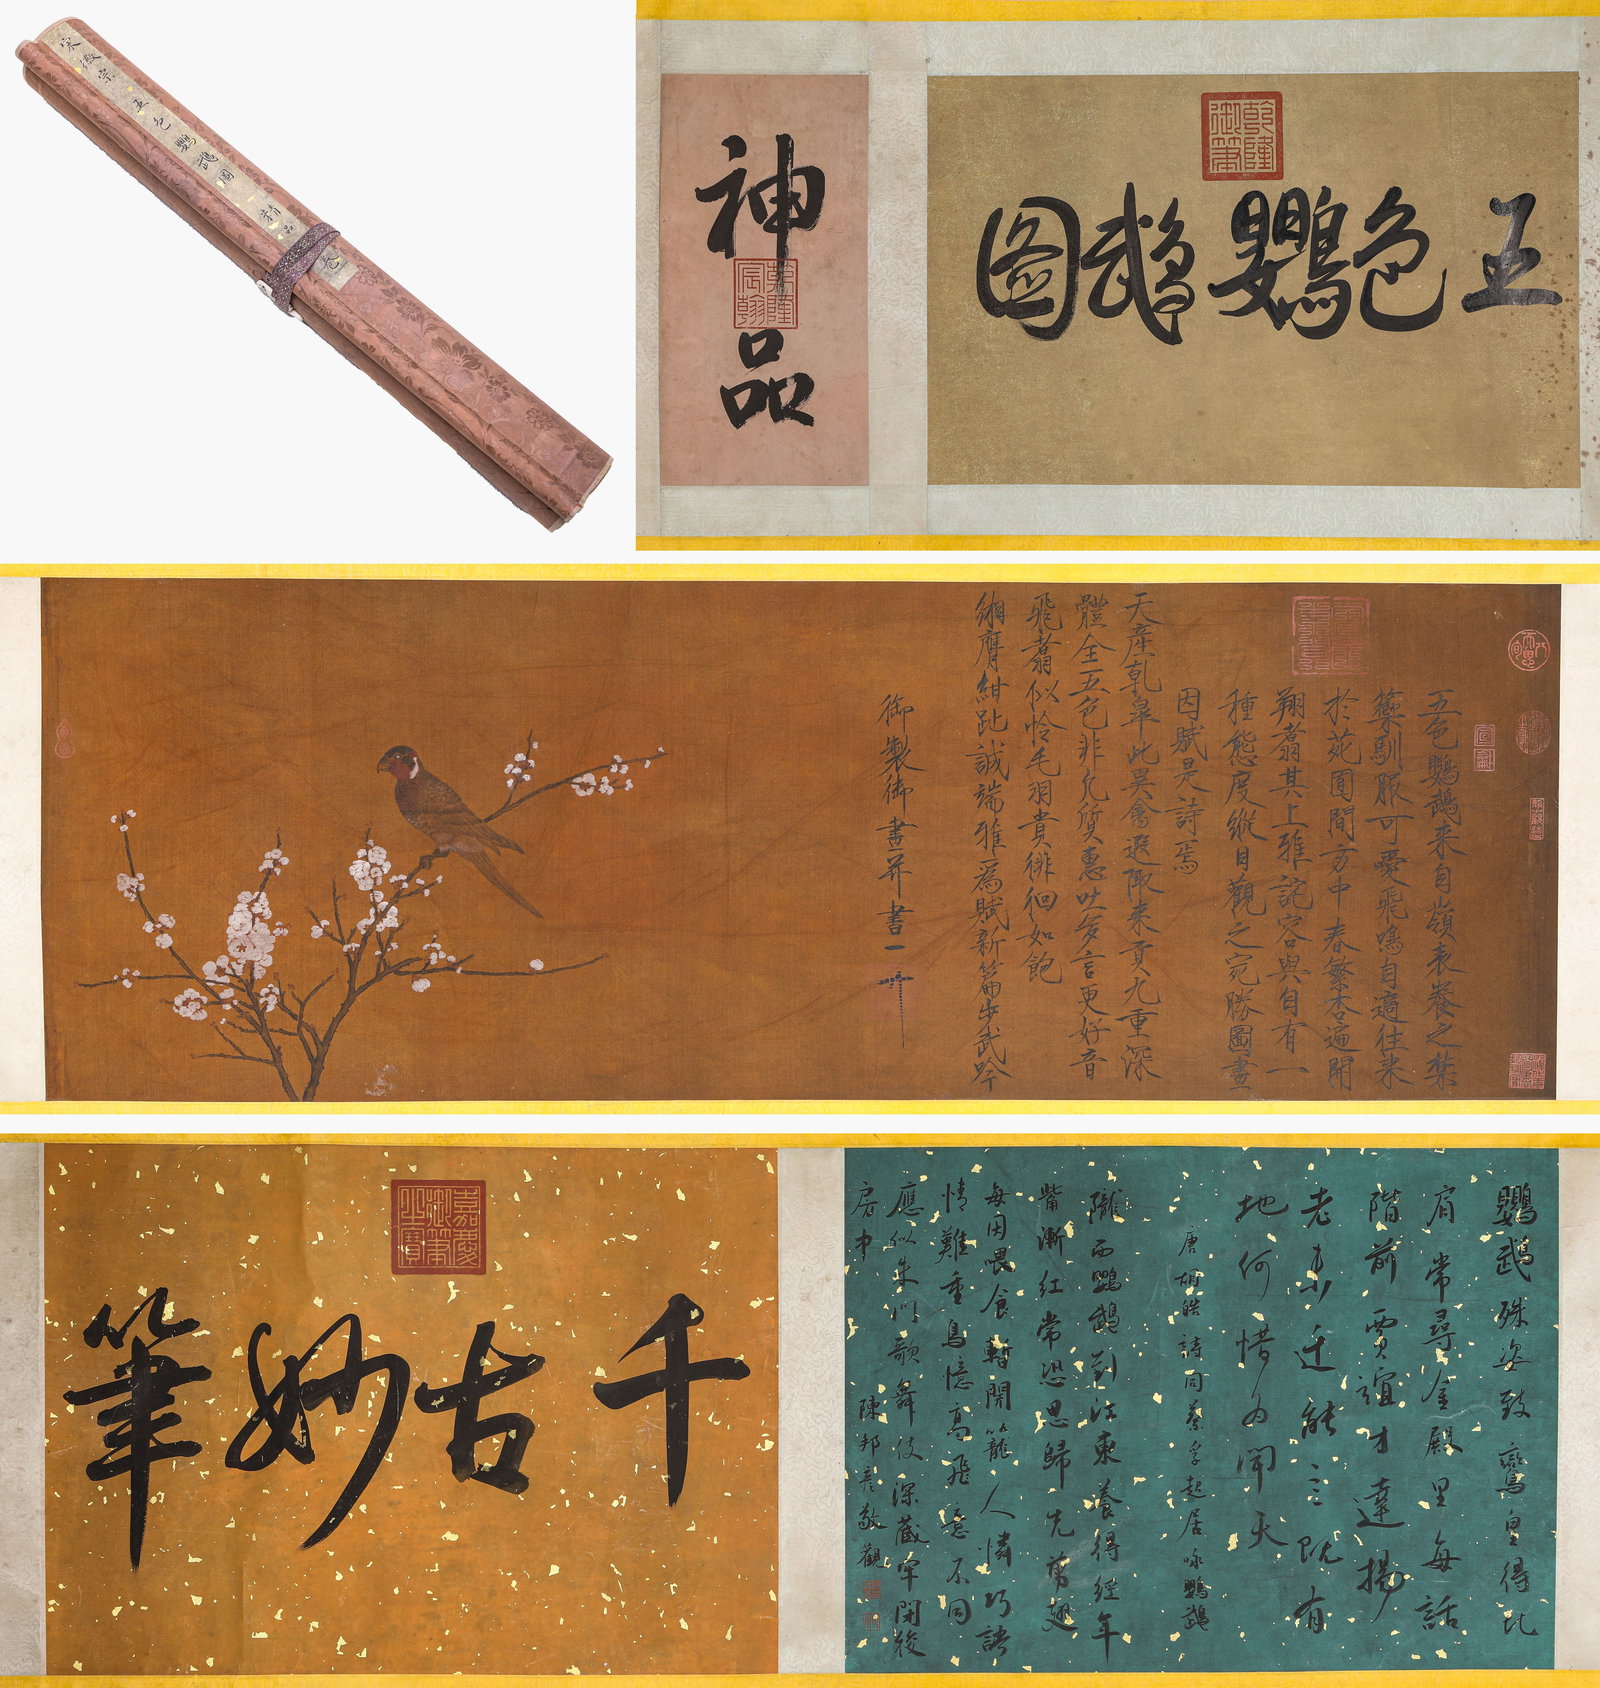 宋徽宗五色鸚鵡圖精品卷
五色鸚鵡圖
乾隆御筆
神品
乾隆宸翰
五色鸚鵡来自嶺表養之禁
籞馴服可愛飛鳴自適往来
於苑囿間方中春繁杏遍開
翔翥其上雅詫容與自有一
種態度縱目觀之宛勝圖畫
因賦是詩焉
天產乹皋此異禽遐陬来貢九重深
體全五色非凡質惠吐多言更好音
飛翥似怜毛羽貴徘徊如飽
緗膺紺趾誠端雅為賦新篇步武吟
御製御畫并書
宣和
鸚鵡殊姿致鸞皇得比
肩常尋金殿里每話
階前賈誼才達揚
老未迁能言既有
地何惜为聞天
唐胡皓詩同蔡孚起居咏鸚鵡
隴西鸚鵡到江東養得經年
觜漸紅常恐思歸先剪翅
每因喂食暫開籠人憐巧語
情雖重鳥憶高飛意不同
應似朱门歌舞伎深藏牢閉後
房中 陳邦彦敬觀
千古妙筆
嘉慶御筆之寶